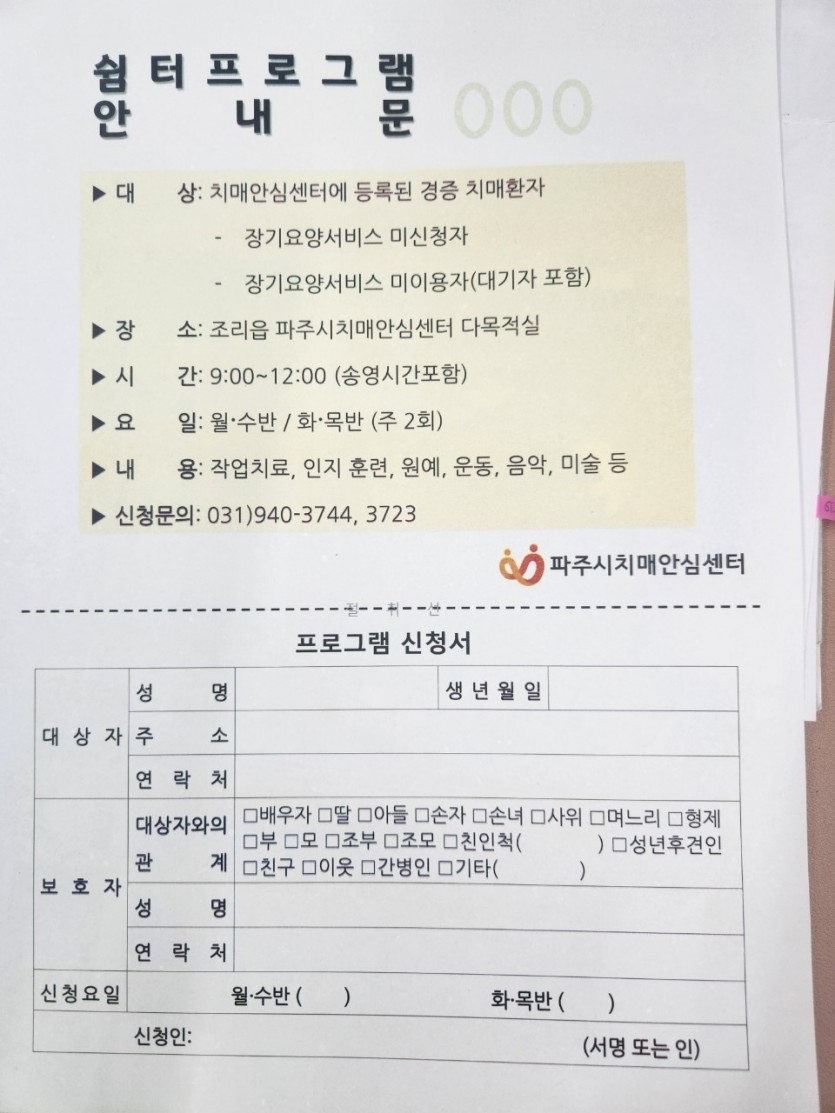 쉼터프로그램
안내문
▶ 대 상: 치매안심센터에 등록된 경증 치매환자
- 장기요양서비스 미신청자
- 장기요양서비스 미이용자(대기자 포함)
▶ 장 소: 조리읍 파주시치매안심센터 다목적실
▶ 시 간: 9:00~12:00 (송영시간포함)
▶ 요 일: 월·수반 / 화·목반 (주 2회)
▶ 내 용: 작업치료, 인지 훈련, 원예, 운동, 음악, 미술 등
▶ 신청문의: 031)940-3744, 3723
파주시치매안심센터
절 취 선
프로그램 신청서
대 상 자
성 명
생 년 월 일
주 소
연 락 처
보 호 자
대상자와의
관 계
□배우자 □딸 □아들 □손자 □손녀 □사위 □며느리 □형제
□부 □모 □조부 □조모 □친인척( ) □성년후견인
□친구 □이웃 □간병인 □기타( )
성 명
연 락 처
신청요일 월·수반 ( ) 화·목반 ( )
신청인: (서명 또는 인)